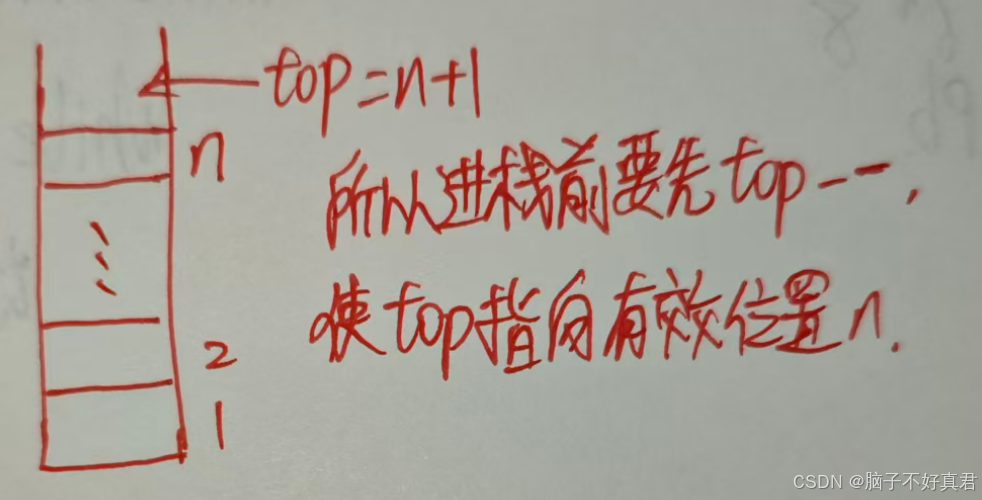 top=n+1
n
所以进栈前要先top--,
使top指向有效位置n.
2
1
CSDN @脑子不好真君